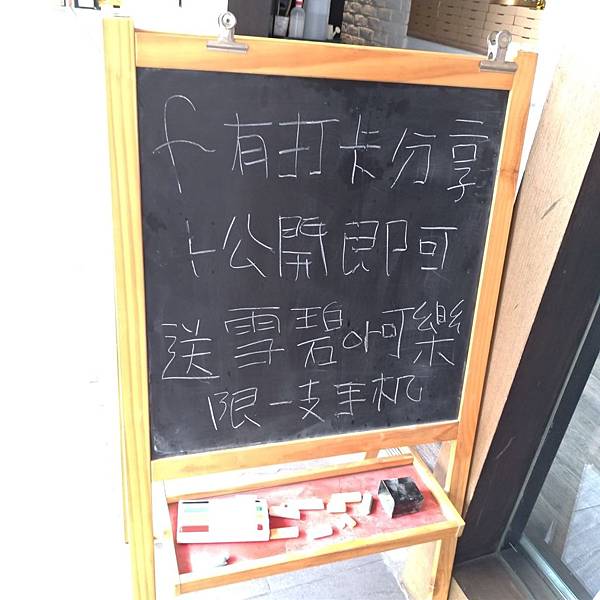 f有打卡分享
+公開即可
送雪碧or可樂
限一支手机